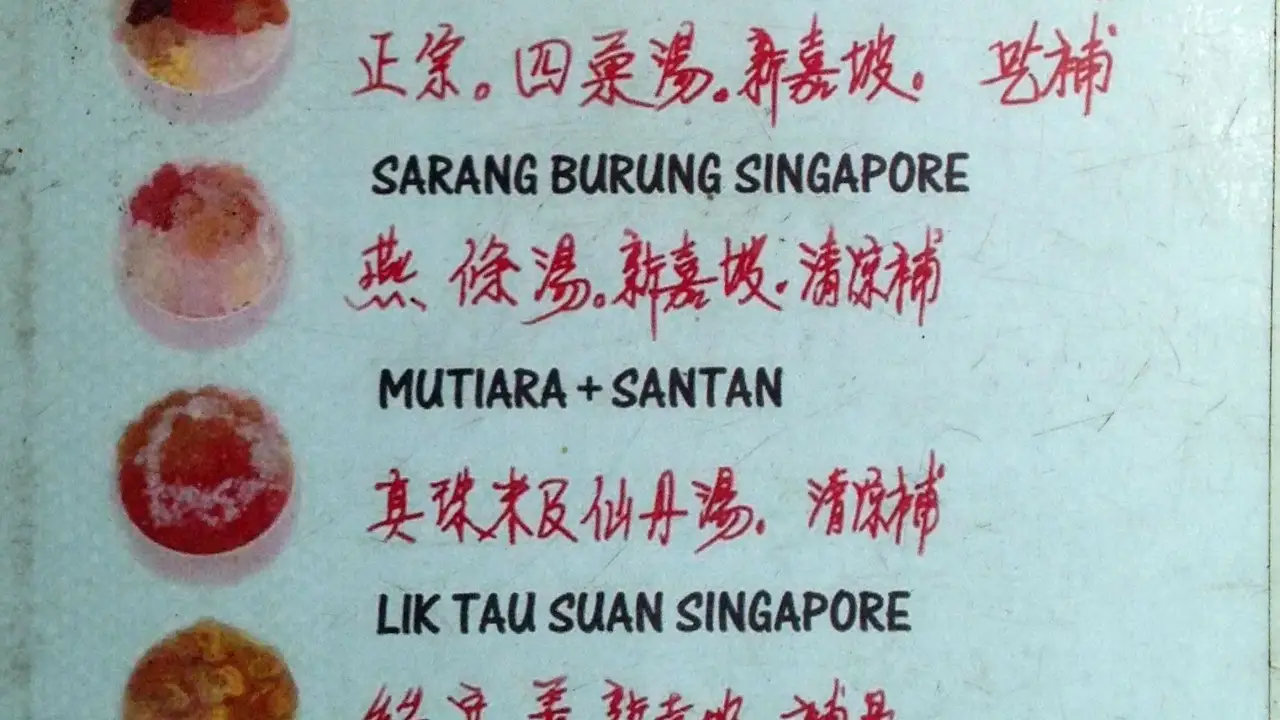 正宗。四菓湯。新嘉坡。 補
SARANG BURUNG SINGAPORE
燕條湯。新嘉坡。清凉補
MUTIARA + SANTAN
真珠米及仙丹湯。清凉補
LIK TAU SUAN SINGAPORE